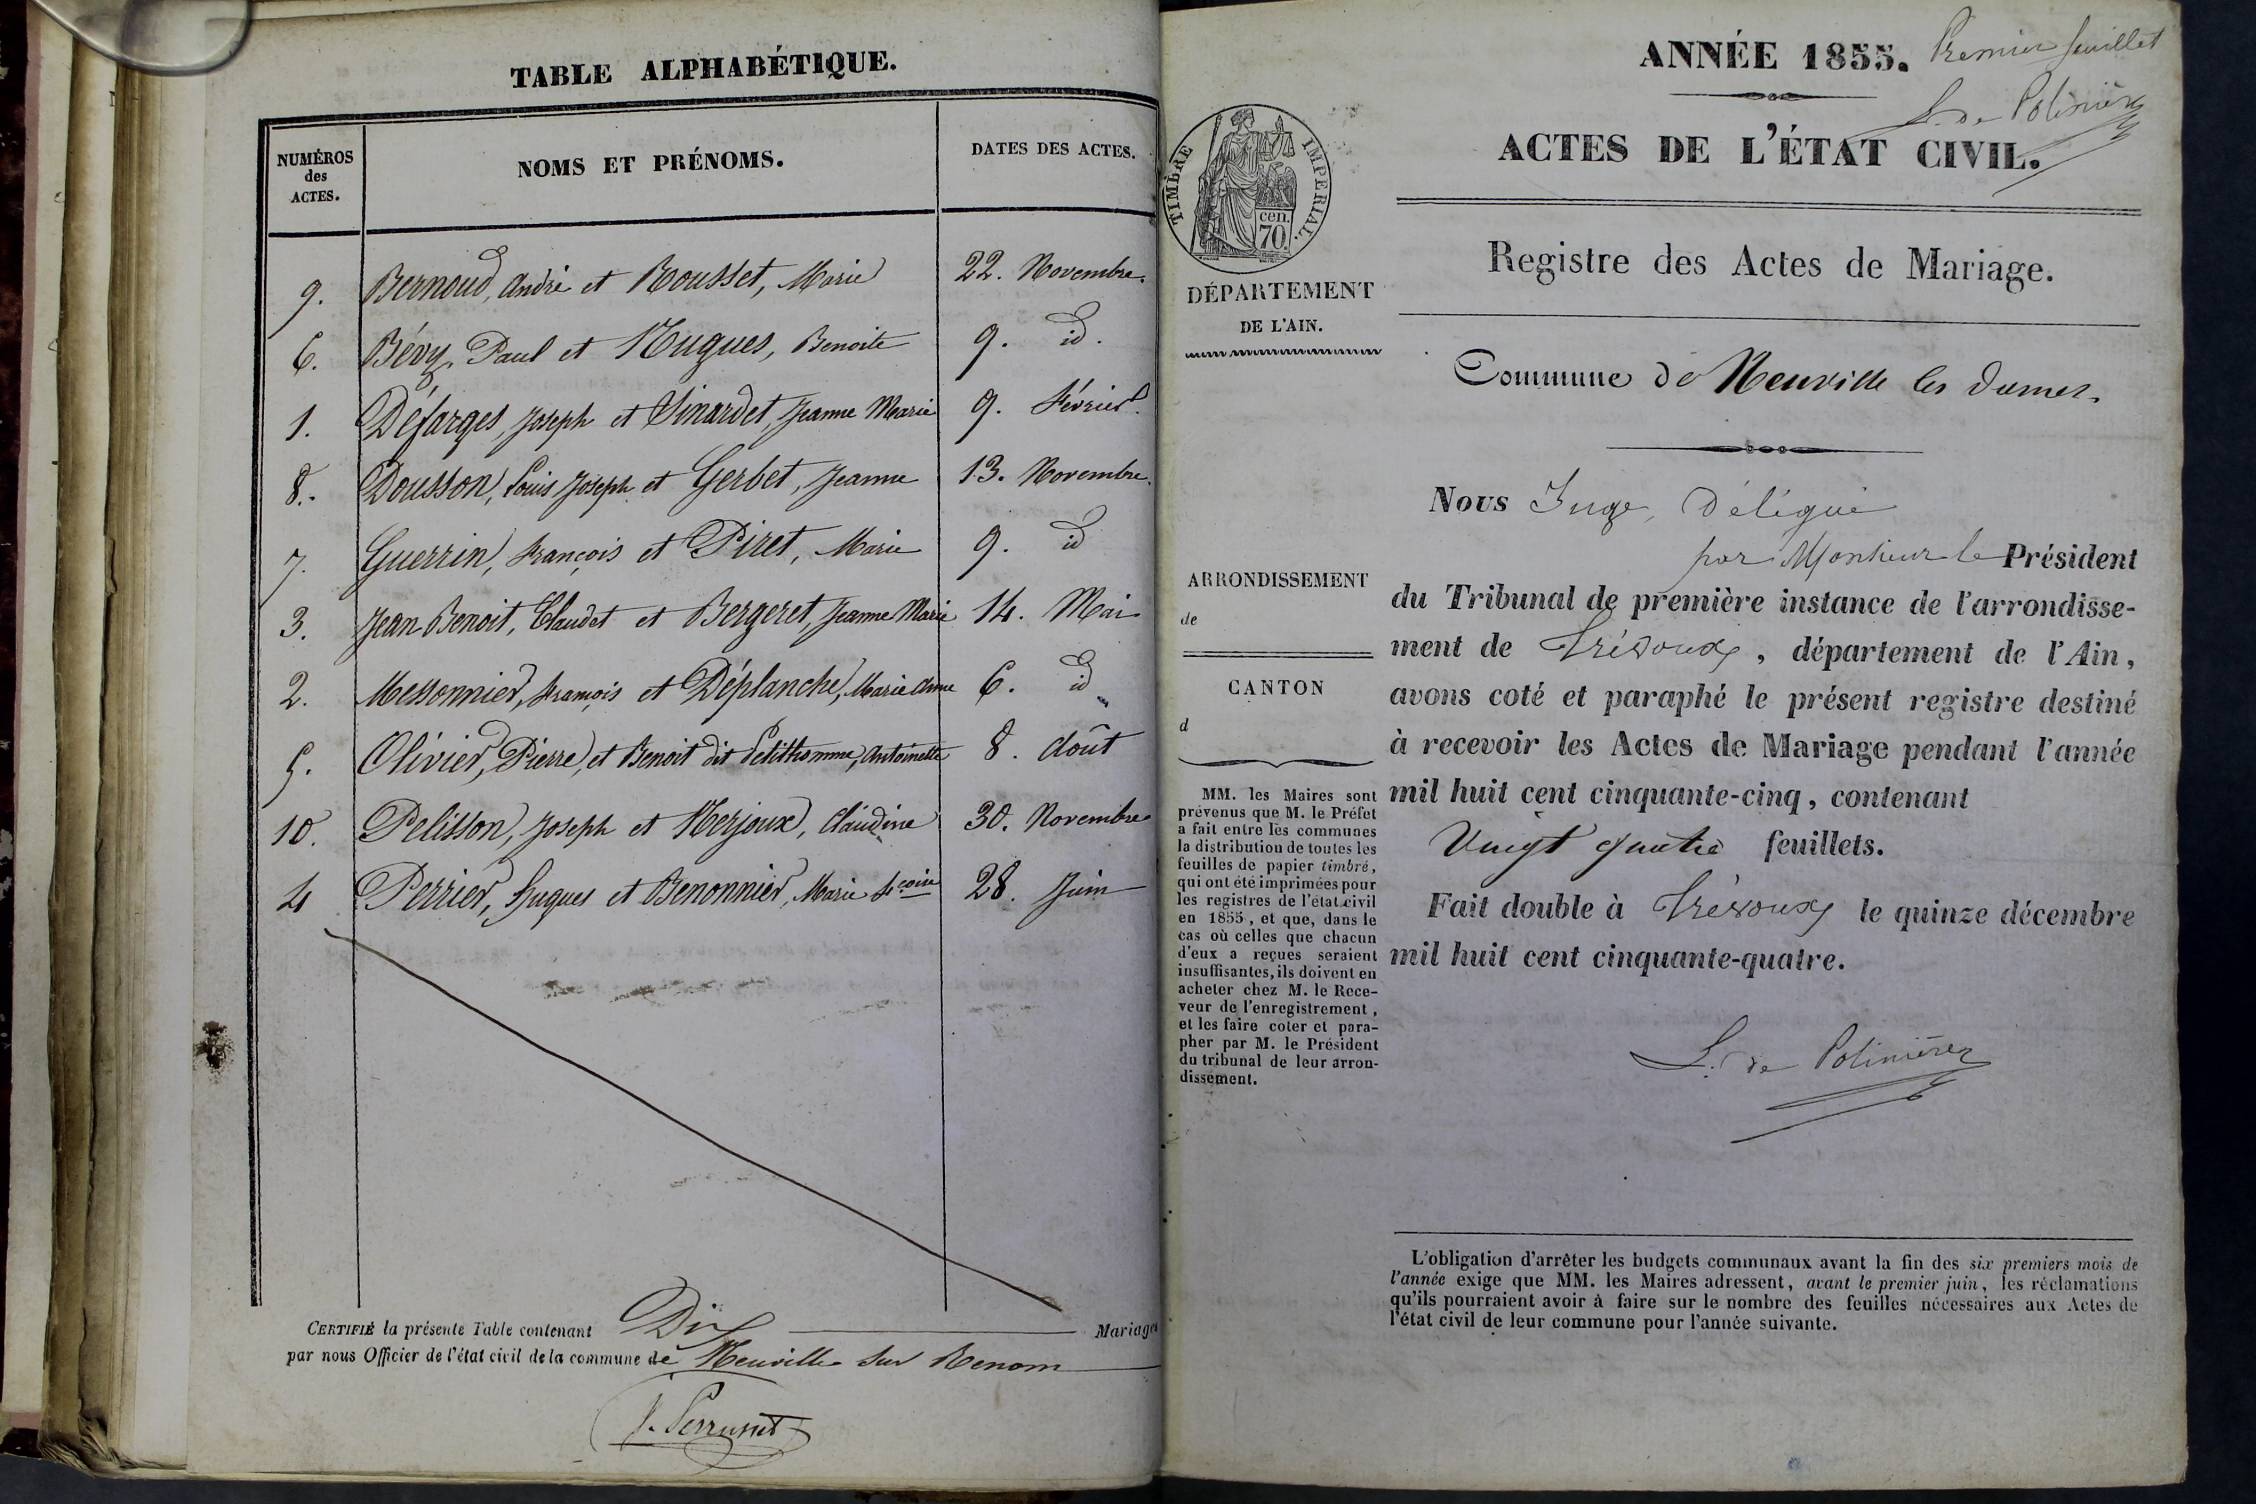 TABLE ALPHABÉTIQUE.
NUMÉROS des ACTES.
NOMS ET PRÉNOMS.
DATES DES ACTES.
9. Bernoud, André et Rousset, Marie 22. Novembre.
6. Bévy, Paul et Hugues, Benoite 9. id.
1. Défarges, Joseph et Sinardet, Jeanne Marie 9. Février.
8. Dousson, Louis Joseph et Gerbet, Jeanne 13. Novembre.
7. Guerrin, François et Piret, Marie 9. id
3. Jean Benoit, Claudet et Bergeret, Jeanne Marie 14. Mai
2. Messonnier, François et Déplanche, Marie Anne 6. id
5. Olivier, Pierre, et Benoit dit Petithomme, Antoinette 8. Août
10. Pelisson, Joseph et Merjoux, Claudine 30. Novembre
4 Perrier, Hugues et Benonnier, Marie fcoise 28. Juin
CERTIFIÉ la présente Table contenant Dix Mariages
par nous Officier de l'état civil de la commune de Neuville sur Renom
J. Perrusset
ANNÉE 1855.
Premier feuillet
L. de Polinière
ACTES DE L'ÉTAT CIVIL.
TIMBRE IMPERIAL.
cen.
70.
Registre des Actes de Mariage.
DÉPARTEMENT
DE L'AIN.
Commune de Neuville les Dames.
Nous Juge, Délégué
par Monsieur le Président
du Tribunal de première instance de l'arrondisse-
ment de Trévoux, département de l'Ain,
avons coté et paraphé le présent registre destiné
à recevoir les Actes de Mariage pendant l'année
mil huit cent cinquante-cinq, contenant
Vingt quatre feuillets.
Fait double à Trévoux le quinze décembre
mil huit cent cinquante-quatre.
L. de Polinière
ARRONDISSEMENT
de
CANTON
d
MM. les Maires sont
prévenus que M. le Préfet
a fait entre les communes
la distribution de toutes les
feuilles de papier timbré,
qui ont été imprimées pour
les registres de l'état civil
en 1855, et que, dans le
cas où celles que chacun
d'eux a reçues seraient
insuffisantes, ils doivent en
acheter chez M. le Rece-
veur de l'enregistrement,
et les faire coter et para-
pher par M. le Président
du tribunal de leur arron-
dissement.
L'obligation d'arrêter les budgets communaux avant la fin des six premiers mois de
l'année exige que MM. les Maires adressent, avant le premier juin, les réclamations
qu'ils pourraient avoir à faire sur le nombre des feuilles nécessaires aux Actes de
l'état civil de leur commune pour l'année suivante.